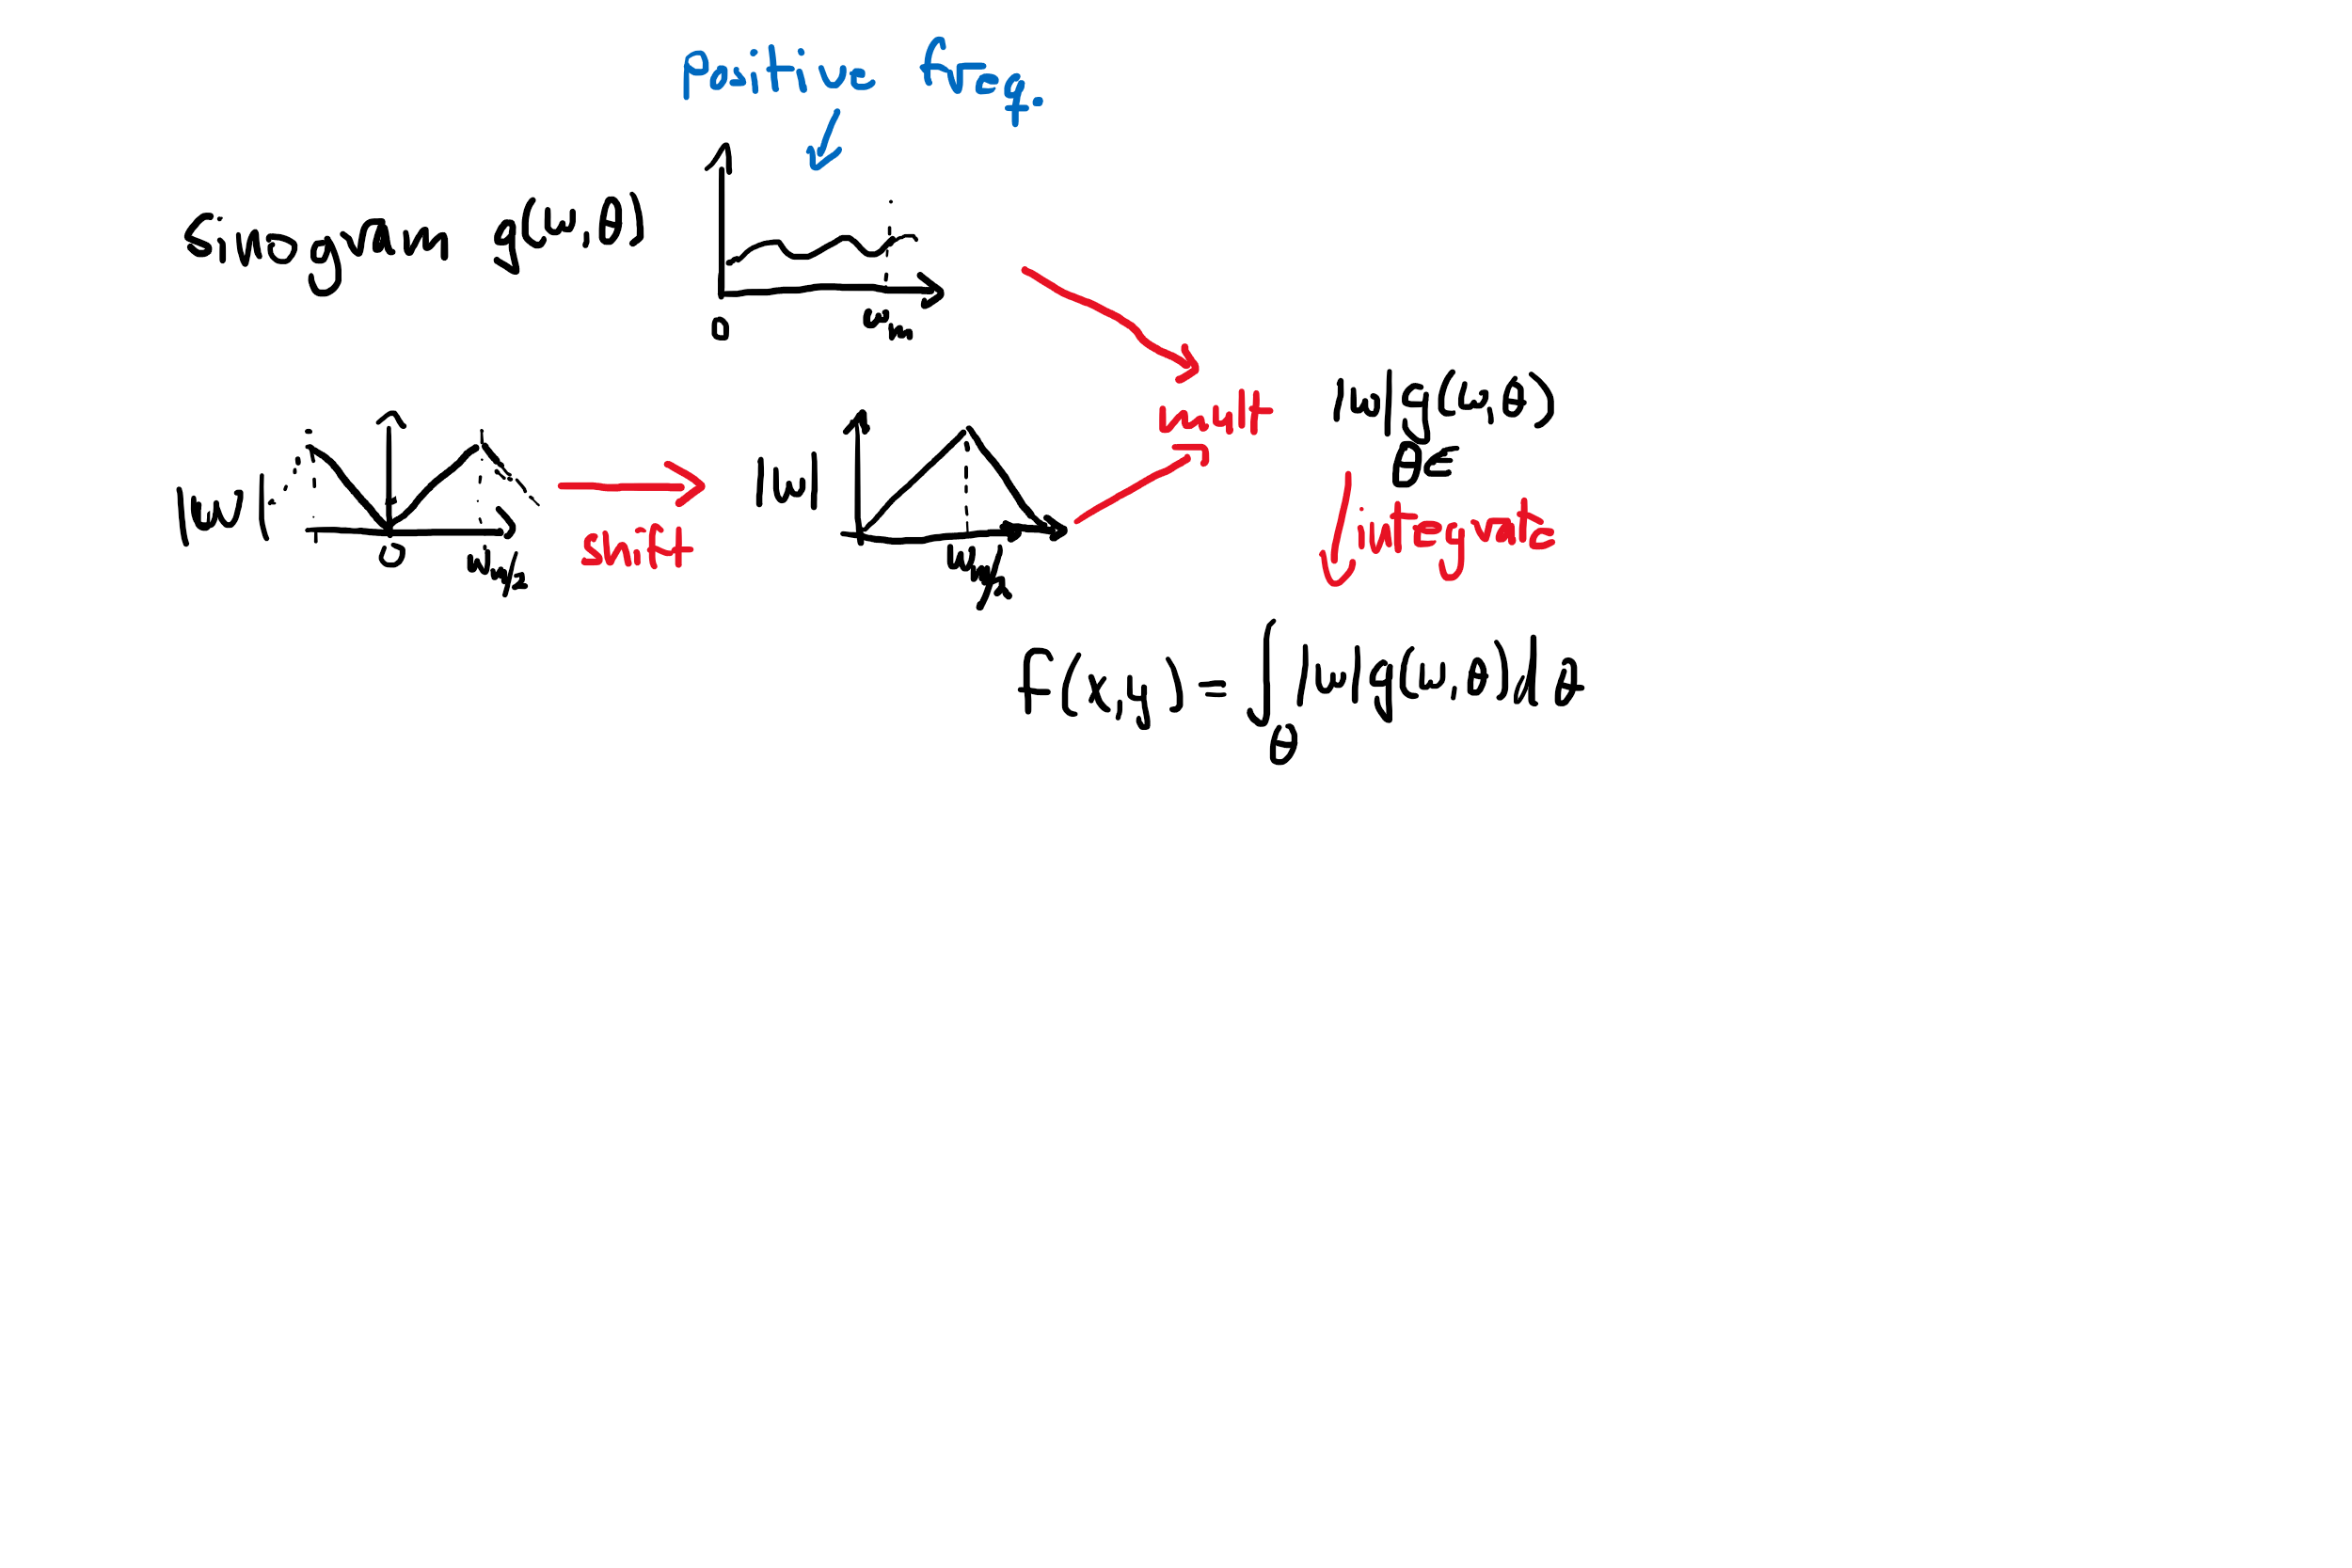 positive freq.
Sinogram g(ω,θ)
0
ω_m
|ω|
0
ω_m/2
shift
|ω|
ω_m/2
mult
|ω|g(ω,θ)
θ∈
integrate
f(x,y) = ∫_θ |ω|g(ω,θ)dθ